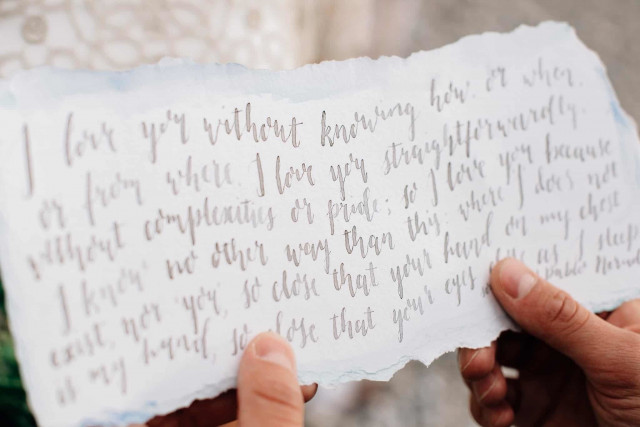 I love you without knowing how, or when,
or from where. I love you straightforwardly,
without complexities or pride; so I love you because
I know no other way than this: where I does not
exist, nor you, so close that your hand on my chest
is my hand, so close that your eyes as I sleep
Pablo